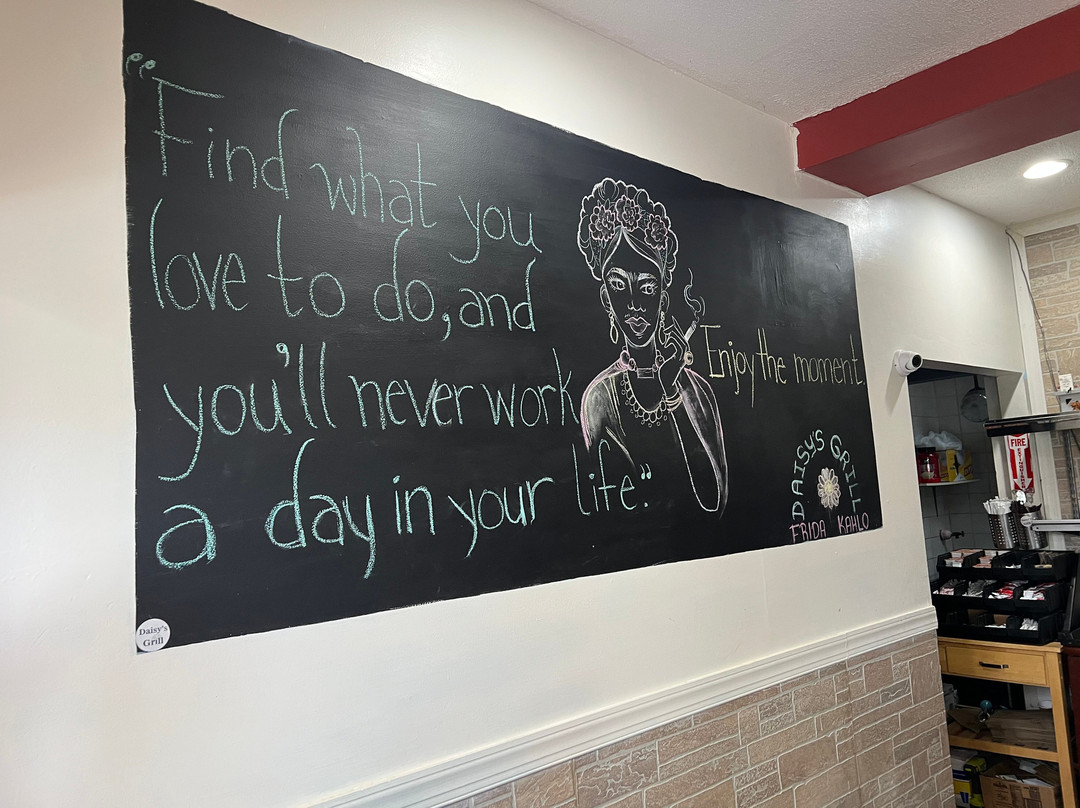 “Find what you
love to do, and
you'll never work
a day in your life."
Enjoy the moment.
DAISY'S GRILL
FRIDA KAHLO
Daisy's
Grill
FIRE